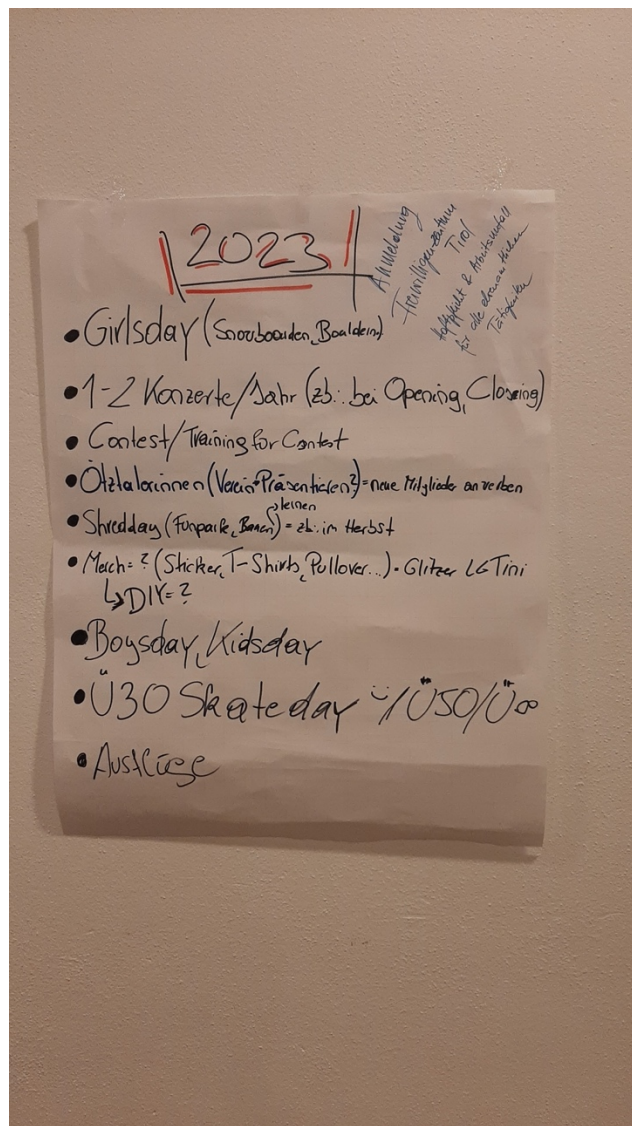 2023
Anmeldung
Freiwilligenzentrum
Tirol
Haftpflicht & Arbeitsunfall
für alle ehrenamtlichen
Tätigkeiten
• Girlsday (Snowboarden, Bouldern)
• 1-2 Konzerte/Jahr (zb.: bei Opening, Closing)
• Contest/Training for Contest
• Ötztalerinnen (Verein-Präsentieren?) = neue Mitglieder anwerben
leinen
• Shredday (Funpark, ) = zb.: im Herbst
• Merch = ? (Sticker, T-Shirts, Pullover...) - Glitzer LG Tini
↳ DIY = ?
• Boysday, Kidsday
• Ü30 Skateday / Ü50/Ü∞
• Ausflüge